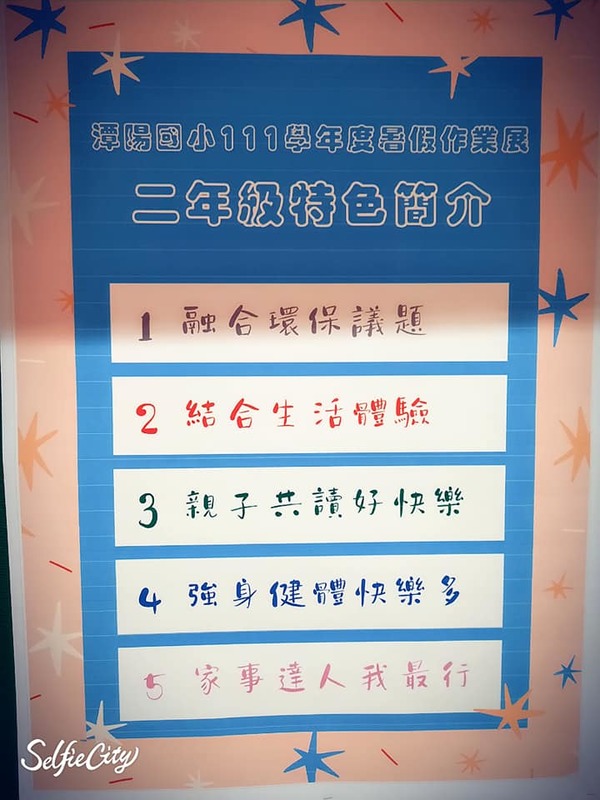 潭陽國小111學年度暑假作業展
二年級特色簡介
1 融合環保議題
2 結合生活體驗
3 親子共讀好快樂
4 強身健體快樂多
5 家事達人我最行
SelfieCity